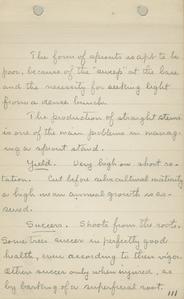 The form of sprouts is apt to be
poor, because of the "sweep" at the base
and the necessity for seeking light
from a dense bunch.
The production of straight stems
is one of the main problems in manag-
ing a sprout stand.
Yield. Very high on short ro-
tation. Cut before subcultural maturity
a high mean annual growth is as-
sured.
Suckers. Shoots from the roots.
Some trees sucker in perfectly good
health, even according to their vigor.
Others sucker only when injured, as
by barking of a superficial root.
111